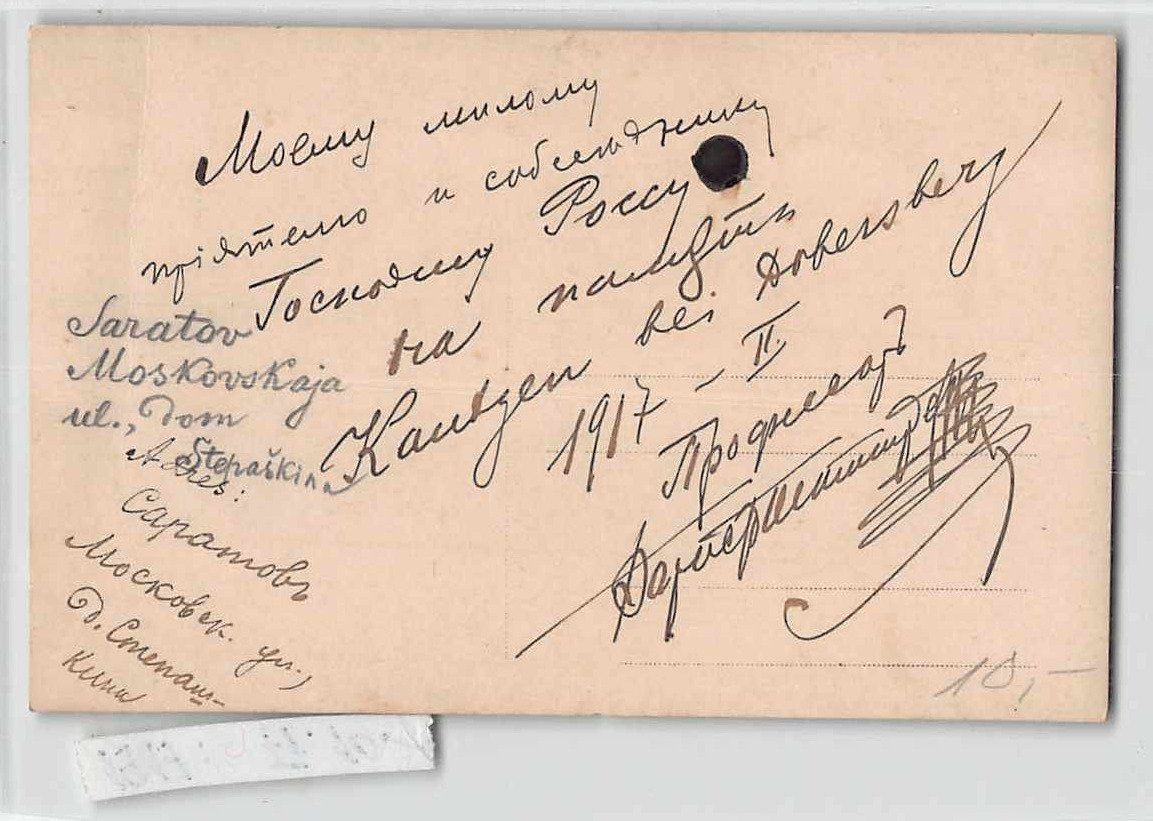 Моему милому
пріятелю и собесѣднику
Господину Россу
на память
Kautzen bei Dobersberg
1917 – II.
Saratov
Moskovskaja
ul., Dom
Stepaškina
Adres:
Саратовъ
Московск. ул.,
д. Степаш-
кина
10,-